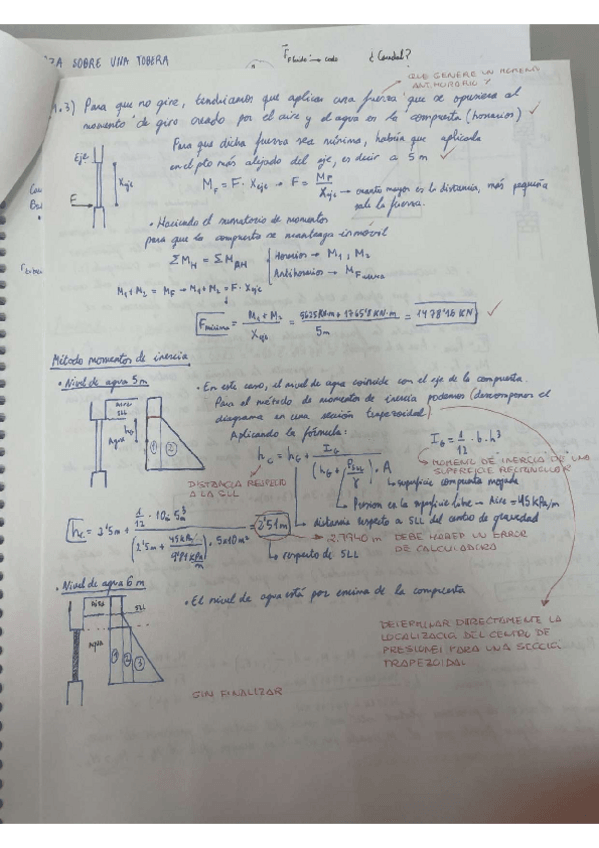 SOBRE UNA TOBERA
F Fluido → codo
¿Caudal?
QUE GENERE UN MOMENT
ANTIHORARIO Y
1.3) Para que no gire, tendríamos que aplicar una fuerza que se opusiera al
momento de giro creado por el aire y el agua en la compuerta (horarios) ✓
Para que dicha fuerza sea mínima, habría que aplicarla
en el pto más alejado del eje, es decir a 5 m ✓
Eje
Xeje
F
M_F = F · Xeje → F = M_F / Xeje → cuanto mayor es la distancia, más pequeña
sale la fuerza.
• Haciendo el sumatorio de momentos
para que la compuerta se mantenga inmóvil
ΣM_H = ΣM_AH
Horarios → M₁, M₂
Antihorarios → M_Fuerza
M₁ + M₂ = M_F → M₁ + M₂ = F · Xeje
Fmínima = (M₁ + M₂) / Xeje = / 5m = 1478'16 KN ✓
Método momentos de inercia
• Nivel de agua 5m
Aire
SLL
Agua
1 2
• En este caso, el nivel de agua coincide con el eje de la compuerta.
Para el método de momentos de inercia podemos (descomponer el
diagrama en una sección trapezoidal)
Aplicando la fórmula:
h_c = h_G + I_G / ((h_G + P_SLL / γ) · A)
I_G = 1/12 · b · h³
MOMENT DE INERCIA DE UNA
SUPERFICIE RECTANGULAR
DISTANCIA RESPECTO
A LA SLL
superficie compuerta mojada
Presion en la superficie libre → Aire = 45 kPa/m
distancia respecto a SLL del centro de gravedad
h_c = 2'5m + (1/12 · 10 · 5³) / ((2'5m + 45 kPa / 9'81 kPa/m) · 5x10m²) = 2'51m
respecto de SLL
2.7940 m DEBE HABER UN ERROR
DE CALCULADORA
• Nivel de agua 6m
Aire
SLL
Agua
1 2 3
• El nivel de agua está por encima de la compuerta
DETERMINAR DIRECTAMENTE LA
LOCALIZACIÓ DEL CENTRO DE
PRESIONES PARA UNA SECCIÓ
TRAPEZOIDAL
SIN FINALIZAR